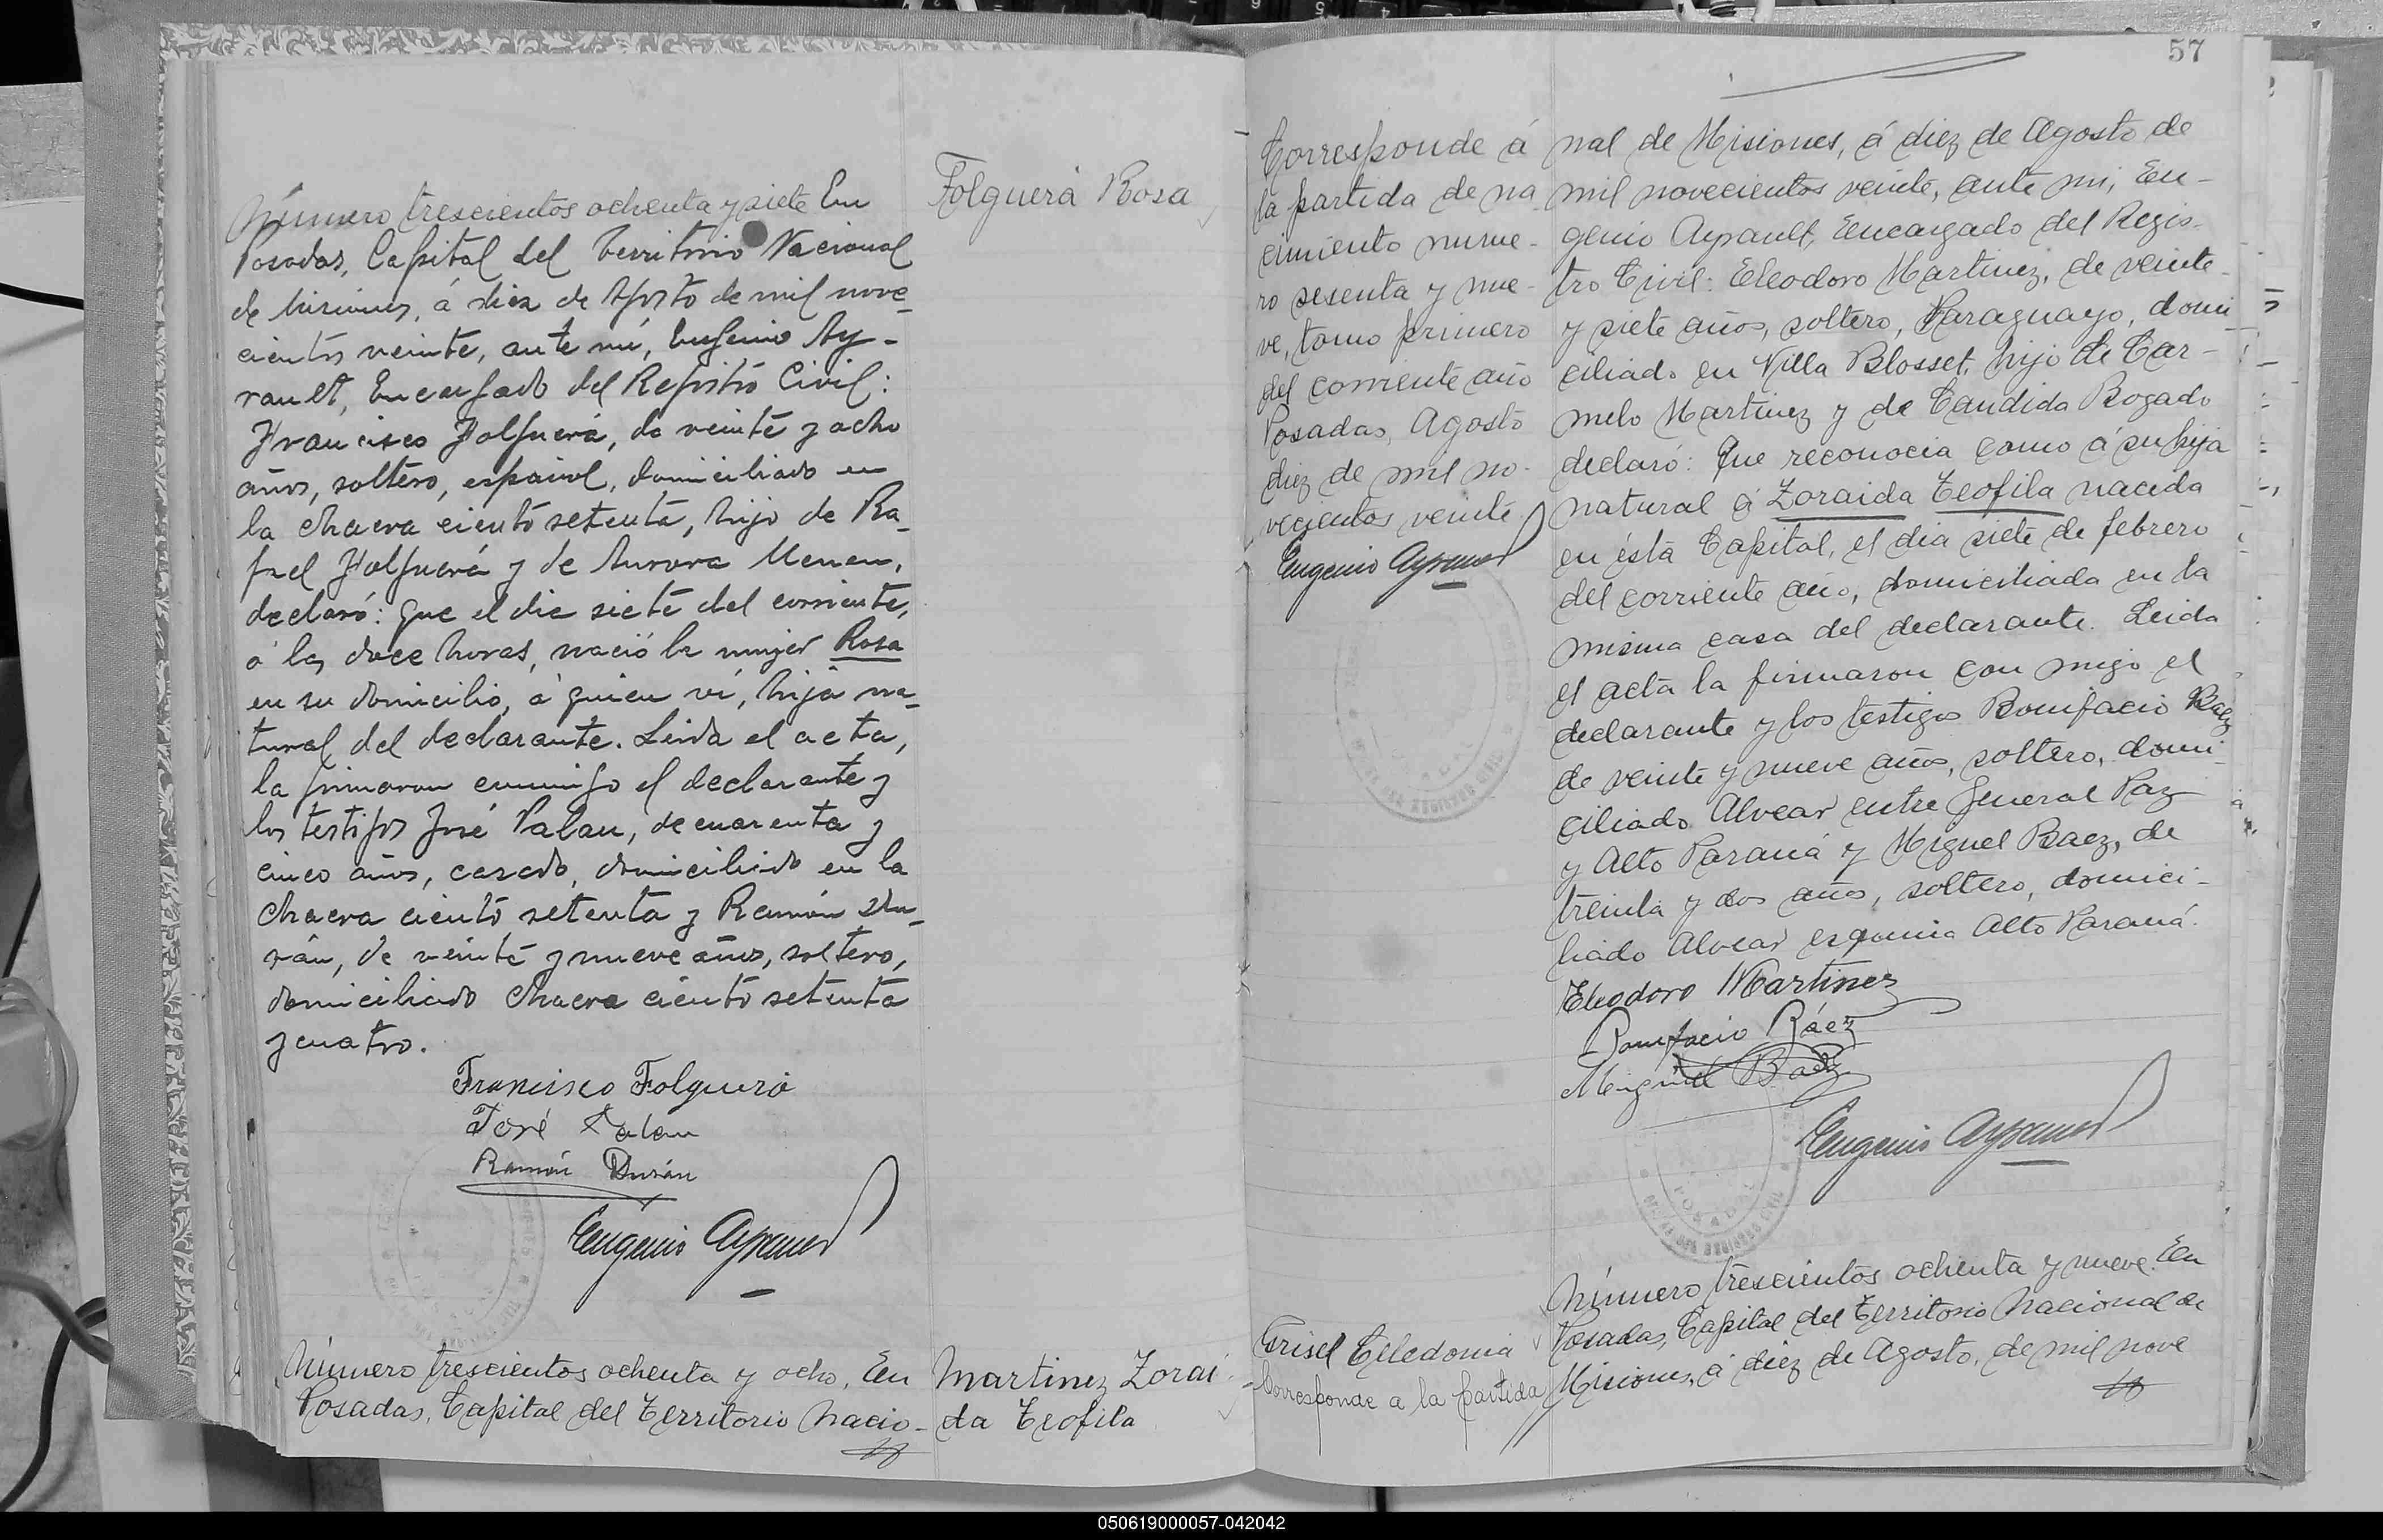 Número trescientos ochenta y siete En
Posadas, Capital del Territorio Nacional
de Misiones, á diez de Agosto de mil nove-
cientos veinte, ante mí, Eugenio Ay-
rault, Encargado del Registro Civil:
Francisco Folguerá, de veinte y ocho
años, soltero, español, domiciliado en
la chacra ciento setenta, hijo de Ra-
fael Folguerá y de Aurora Menen,
declaró: Que el dia siete del corriente,
á las doce horas, nació la mujer Rosa
en su domicilio, á quien ví, hija na-
tural del declarante. Leida el acta,
la firmaron conmigo el declarante y
los testigos José Palau, de cuarenta y
cinco años, casado, domiciliado en la
chacra ciento setenta y Ramón Du-
rán, de veinte y nueve años, soltero,
domiciliado chacra ciento setenta
y cuatro.
Francisco Folguerá
José Palau
Ramón Durán
Eugenio Ayrault
Folguerá Rosa
Número trescientos ochenta y ocho. En
Posadas, Capital del Territorio Nacio-
Martinez Zorai
da Teofila
57
Corresponde á
la partida de na
cimiento nume-
ro sesenta y nue-
ve, tomo primero
del corriente año
Posadas, Agosto
diez de mil no-
vecientos veinte
Eugenio Ayrault
nal de Misiones, á diez de Agosto de
mil novecientos veinte, ante mi, Eu-
genio Ayrault, Encargado del Regis-
tro Civil: Eleodoro Martinez, de veinte
y siete años, soltero, Paraguayo, domi
ciliado en Villa Blosset, hijo de Car-
melo Martinez y de Candida Bogado
declaró: Que reconocia como á su hija
natural á Zoraida Teofila nacida
en ésta Capital, el dia siete de febrero
del corriente año, domiciliada en la
misma casa del declarante. Leida
el acta la firmaron con migo el
declarante y los testigos Bonifacio Baez
de veinte y nueve años, soltero, domi-
ciliado Alvear entre General Paz
y Alto Paraná y Miguel Baez, de
treinta y dos años, soltero, domici-
liado Alvear esquina Alto Paraná.
Eleodoro Martinez
Bonifacio Báez
Miguel Baez
Eugenio Ayrault
POSADAS
Grisel Celedonia
Corresponde a la partida
Número trescientos ochenta y nueve. En
Posadas, Capital del Territorio Nacional de
Misiones, á diez de Agosto, de mil nove
050619000057-042042